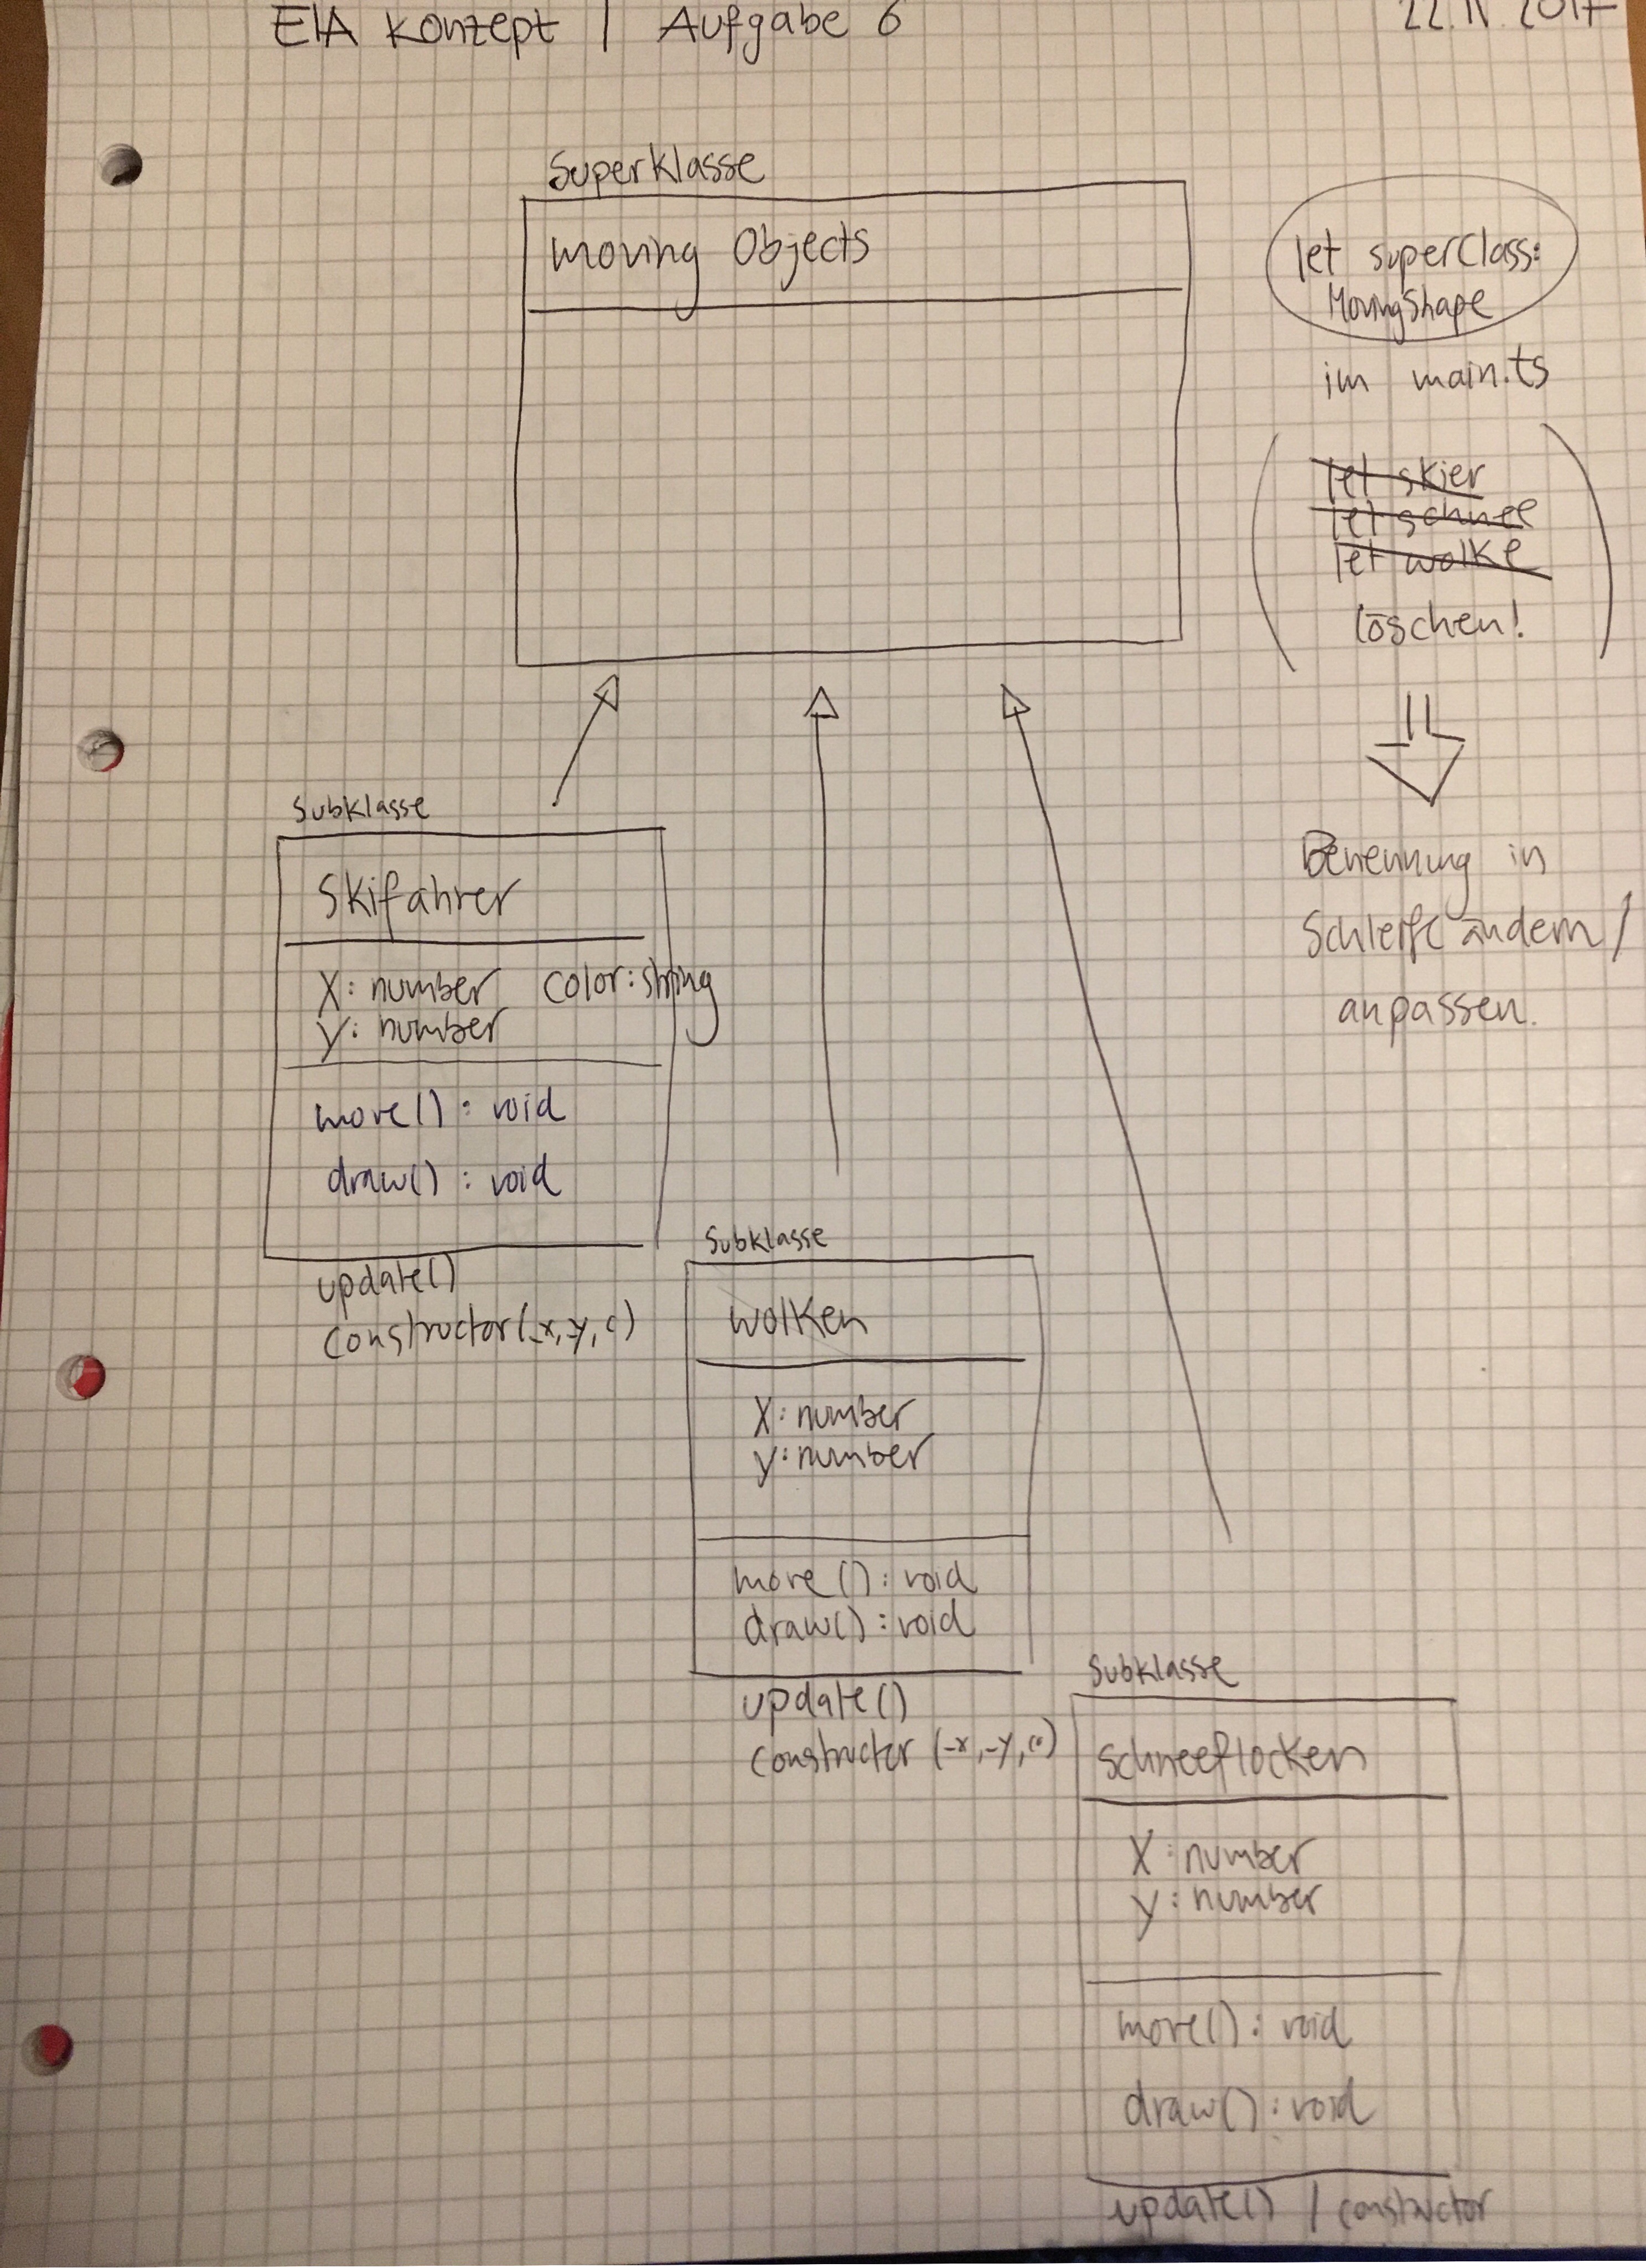 EIA Konzept | Aufgabe 6
22.11.2017
Superklasse
moving Objects
let superClass:
MovingShape
im main.ts
let skier
let schnee
let wolke
löschen!
Benennung in
Schleife ändern /
anpassen.
Subklasse
Skifahrer
X: number color: string
y: number
move(): void
draw(): void
update()
constructor(_x,_y,c)
Subklasse
Wolken
X: number
y: number
move(): void
draw(): void
update()
constructor (_x,_y,c)
Subklasse
Schneeflocken
X: number
y: number
move(): void
draw(): void
update() / constructor